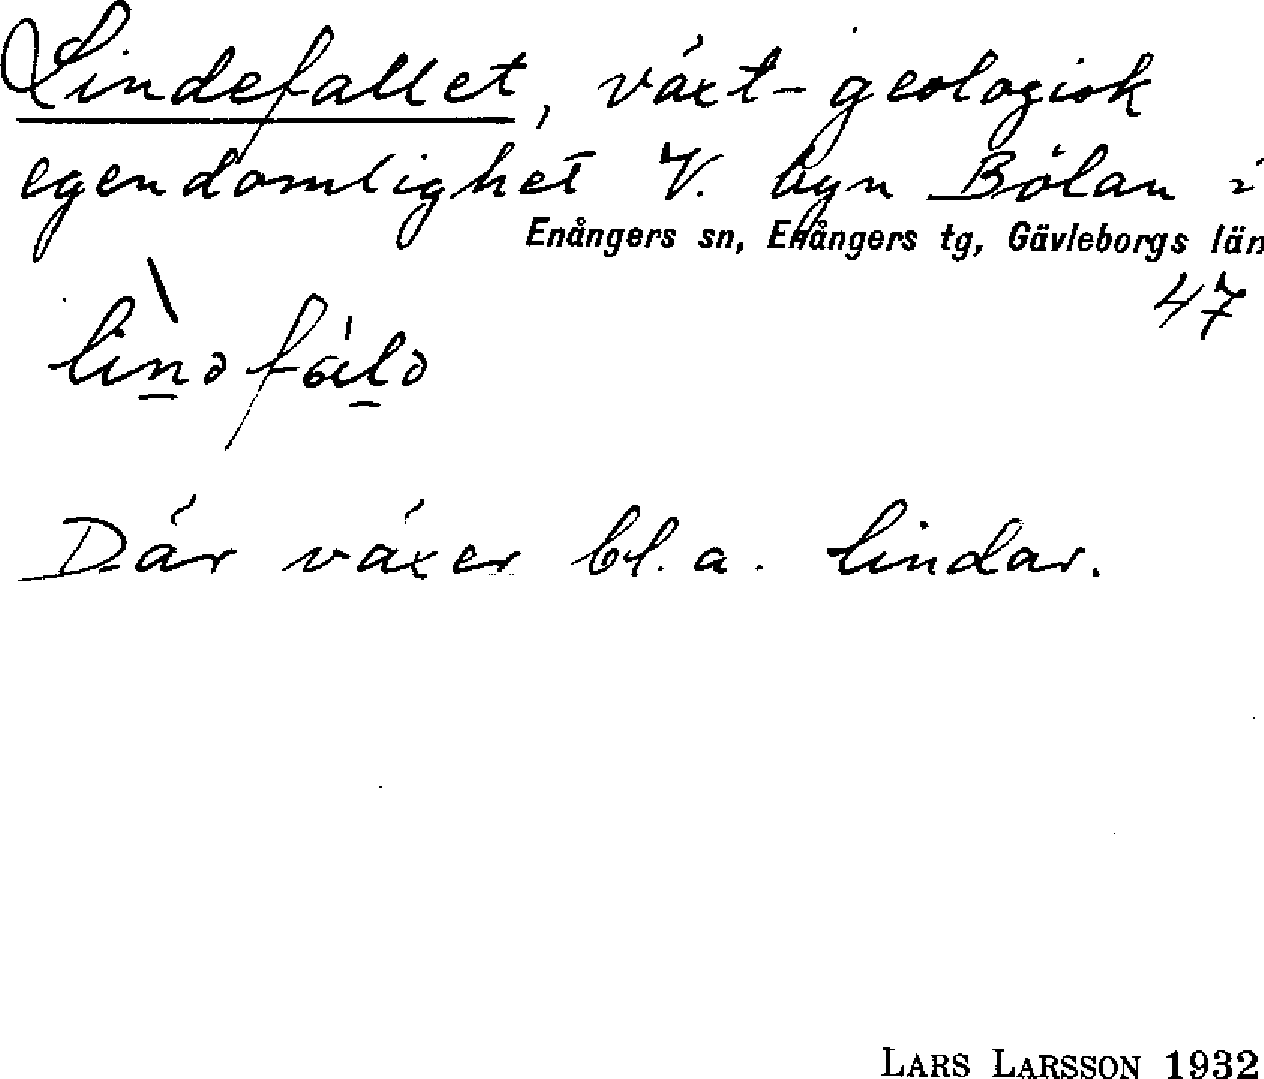 Lindefallet, växt-geologisk
egendomlighet V. byn Bölan i
Enångers sn, Enångers tg, Gävleborgs län
47
Där växer bl. a. lindar.
LARS LARSSON 1932